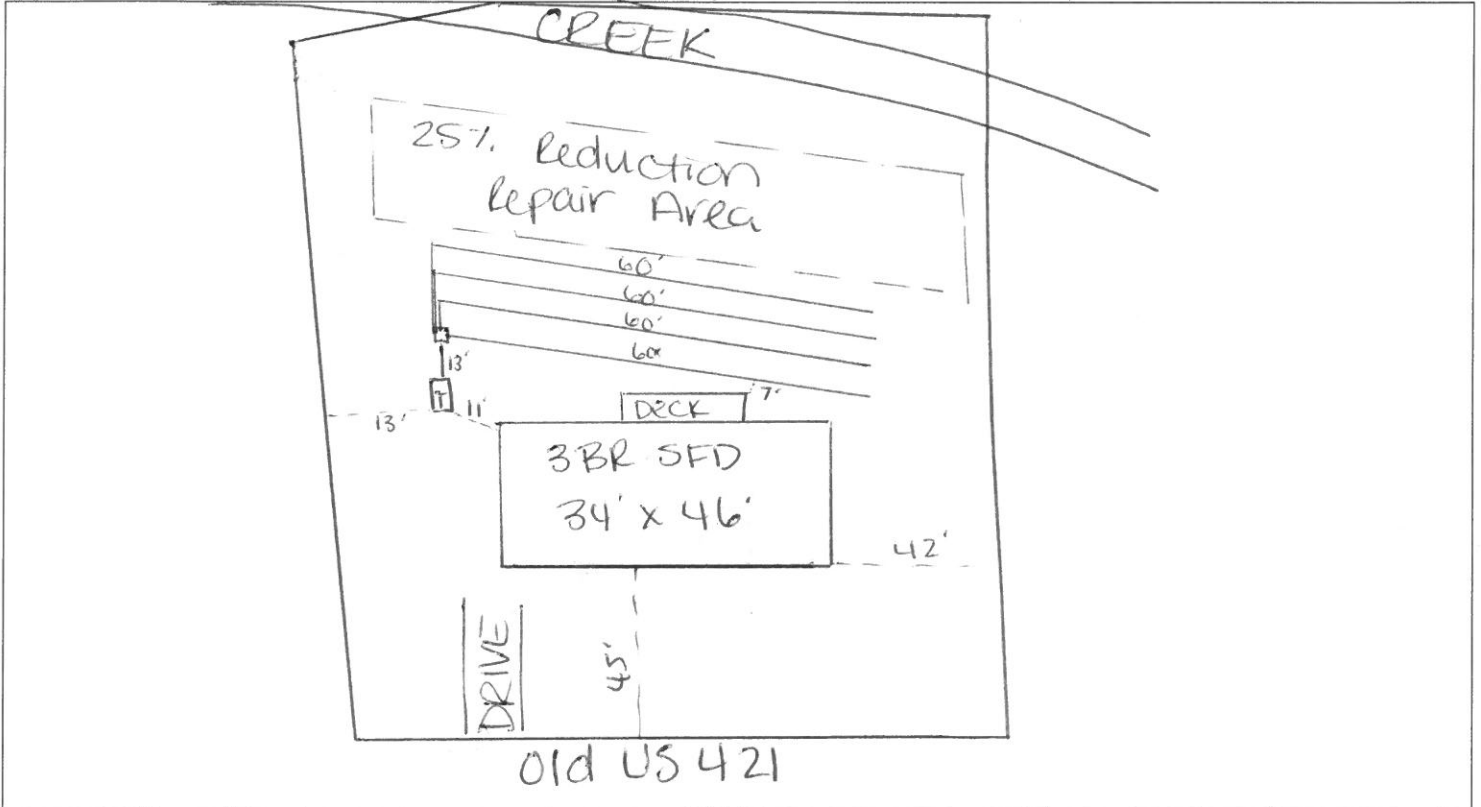 CREEK
25% Reduction
Repair Area
60'
60'
60'
60'
13'
T
13'
11'
DECK
7'
3BR SFD
34' x 46'
42'
45'
DRIVE
Old US 421